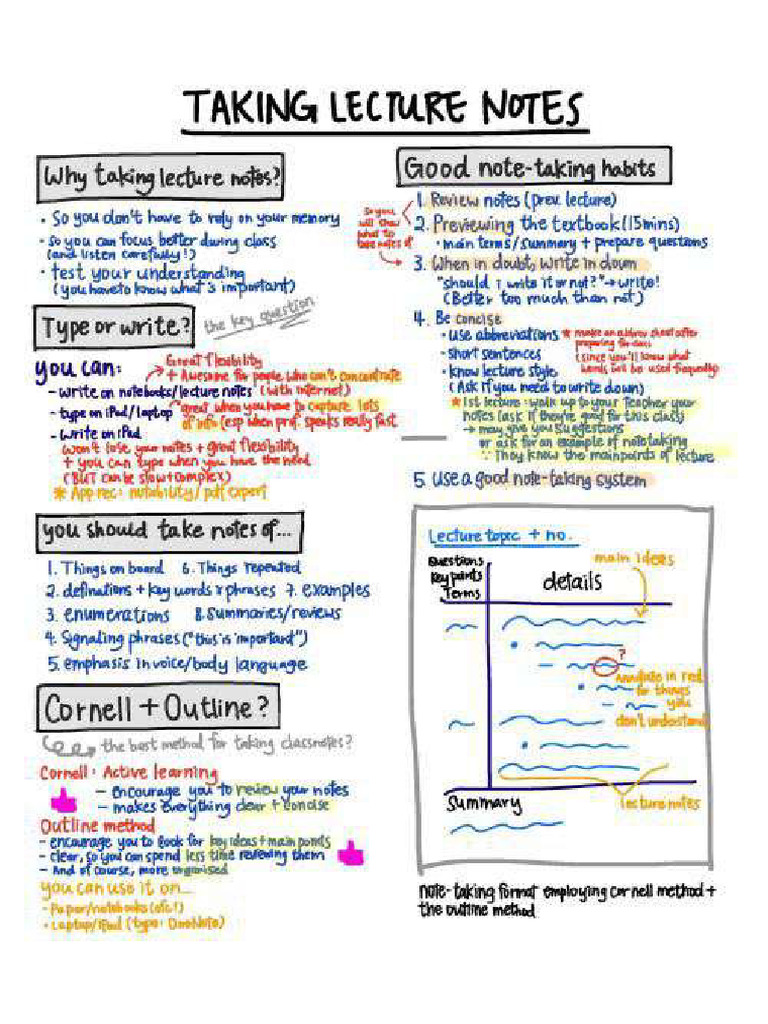 TAKING LECTURE NOTES
Why taking lecture notes?
• So you don't have to rely on your memory
• so you can focus better during class
(and listen carefully!)
• test your understanding
(you have to know what's important)
Type or write?
the key question
you can:
Great flexibility
+ Awesome for people who can't concentrate
- write on notebooks/lecture notes (with internet)
- type on iPad/laptop *great when you have to capture lots
of info (esp when prof. speaks really fast
- write on iPad
won't lose your notes + great flexibility
+ you can type when you have the need
(BUT can be slow+complex)
* App rec: notability/pdf expert
you should take notes of...
1. Things on board 6. Things repeated
2. definations + key words & phrases 7. examples
3. enumerations 8. Summaries/reviews
4. Signaling phrases ("this is important")
5. emphasis in voice/body language
Cornell + Outline?
the best method for taking classnotes?
Cornell: Active learning
- encourage you to review your notes
- makes everything clear + concise
Outline method
- encourage you to look for key ideas + main points
- clear, so you can spend less time reviewing them
- And of course, more organised
you can use it on...
- Paper/notebooks (etc!)
- Laptop/iPad (type: OneNote)
Good note-taking habits
1. Review notes (prev. lecture)
2. Previewing the textbook (15mins)
• main terms/summary + prepare questions
So you
will know
what to
take notes of
3. When in doubt, write in down
"should I write it or not?" → write!
(Better too much than not)
4. Be concise
• use abbreviations * make an abbrev sheet after
preparing for class
• short sentences (since you'll know what
• know lecture style words will be used frequently)
(Ask if you need to write down)
* 1st lecture: walk up to your teacher your
notes (ask if they're good for this class)
→ may give you suggestions
or ask for an example of notetaking
∵ They know the mainpoints of lecture
5. Use a good note-taking system
Lecture topic + no.
Questions
Key points
Terms
details
main ideas
?
Annotate in red
for things
you
don't understand
Summary
lecture notes
note-taking format employing cornell method +
the outline method